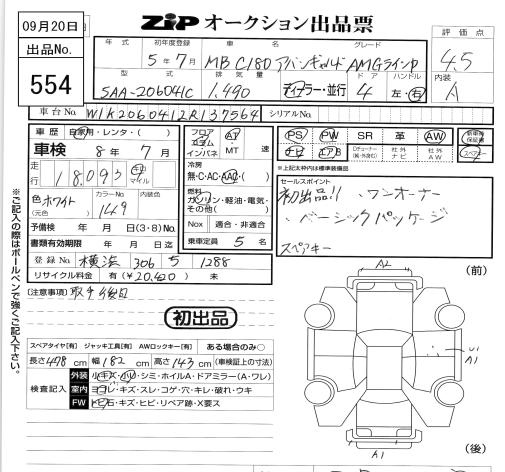 09月20日
出品No.
554
ZIP オークション出品票
年式 初年度登録 車名 グレード
5年7月 MB C180 アバンギャルド AMGライン
型式 排気量 ドア ハンドル
5AA-206041C 1,490 ディーラー・並行 4 左・右
評価点
4.5
内装
A
車台No. W1K2060412R137564 シリアルNo.
車歴 自家用・レンタ・( )
車検 8年7月
走行 18,093 キロ マイル
色 ホワイト カラーNo 内装色
(元色) 149
予備検 年 月 日(3・8)No.
書類有効期限 年 月 日迄
登録No 横浜 306 5 1288
リサイクル料金 有(¥20,420) 未
(注意事項) 取予後日
フロア コラム インパネ AT ・MT 速
冷房
無・C・AC・AAC・( )
燃料
ガソリン・軽油・電気・
その他( )
Nox 適合・非適合
乗車定員 5名
PS PW SR 革 AW 新車時保証書
ナビ エアB Dチューナー(純・外含む) 社外ナビ 社外AW スペアキー
※上記太枠は標準装備品
セールスポイント
初出品!! 、ワンオーナー
、ベーシックパッケージ
スペアキー
※ご記入の際はボールペンで強くご記入下さい。
初出品
スペアタイヤ[有] ジャッキ工具[有] AWロックキー[有] ある場合のみ○
長さ478cm 幅182cm 高さ143cm (車検証上の寸法)
検査記入
外装 小キズ・凹・シミ・ホイルA・ドアミラー(A・ワレ)
室内 ヨゴレ・キズ・スレ・コゲ・穴・キレ・破れ・ウキ
FW トビ石・キズ・ヒビ・リペア跡・X要ス
(前)
A2
A1
A1
(後)